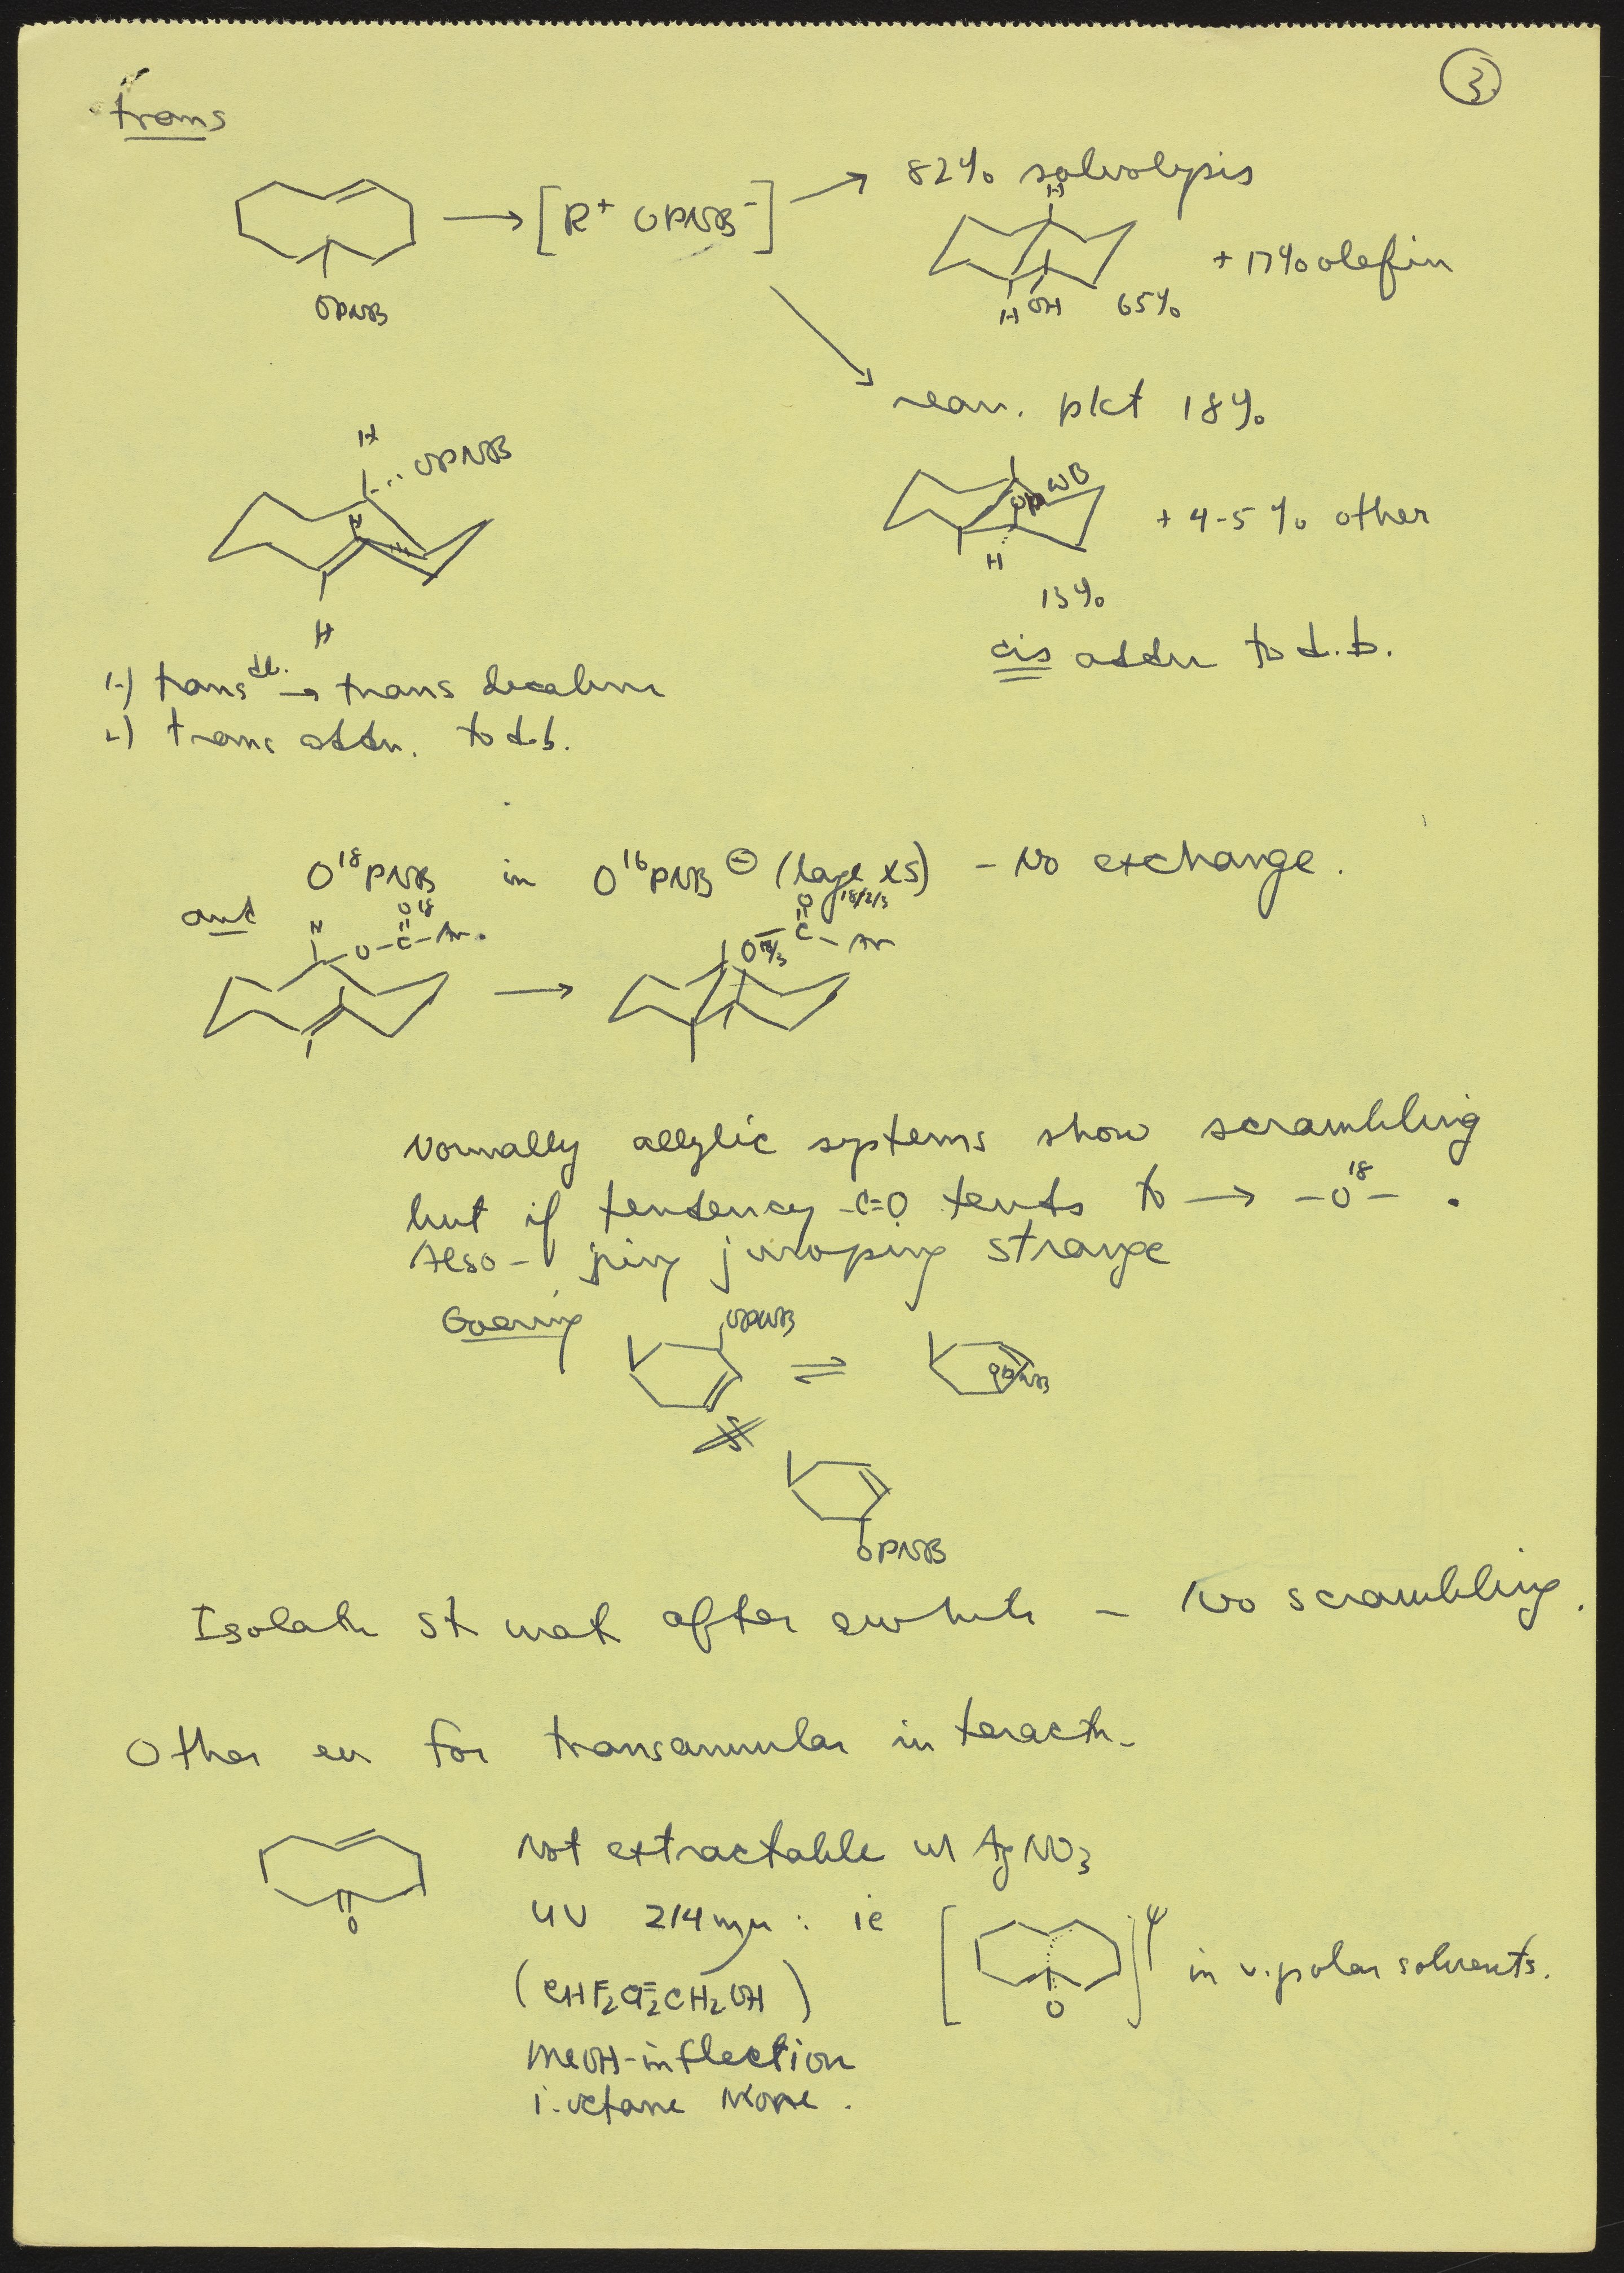 3
trans
82% solvolysis
[R⁺ OPNB⁻]
OPNB
H
H OH 65%
+ 17% olefin
rearr. pkt 18%
H
OPNB
H
H
OPNB
H
+ 4-5% other
13%
cis addn to d.b.
1.) trans d.b. → trans decalins
2.) trans addn. to d.b.
O¹⁸PNB in O¹⁶PNB ⊖ (large xs) - No exchange.
and
H
O-C-Ar.
O¹⁸
O 18/2/3
O 18/3 C-Ar
Normally allylic systems show scrambling
but if tendency -C=O tends to → -O¹⁸- .
Also - jumping strange
Goering
OPNB
OPNB
OPNB
Isolate st mat after awhile - No scrambling.
Other ev for transannular interactn-
O
Not extractable w/ AgNO₃
UV 214 mμ : ie
O
in v. polar solvents.
(CHF₂CF₂CH₂OH)
MeOH-inflection
i-octane None.